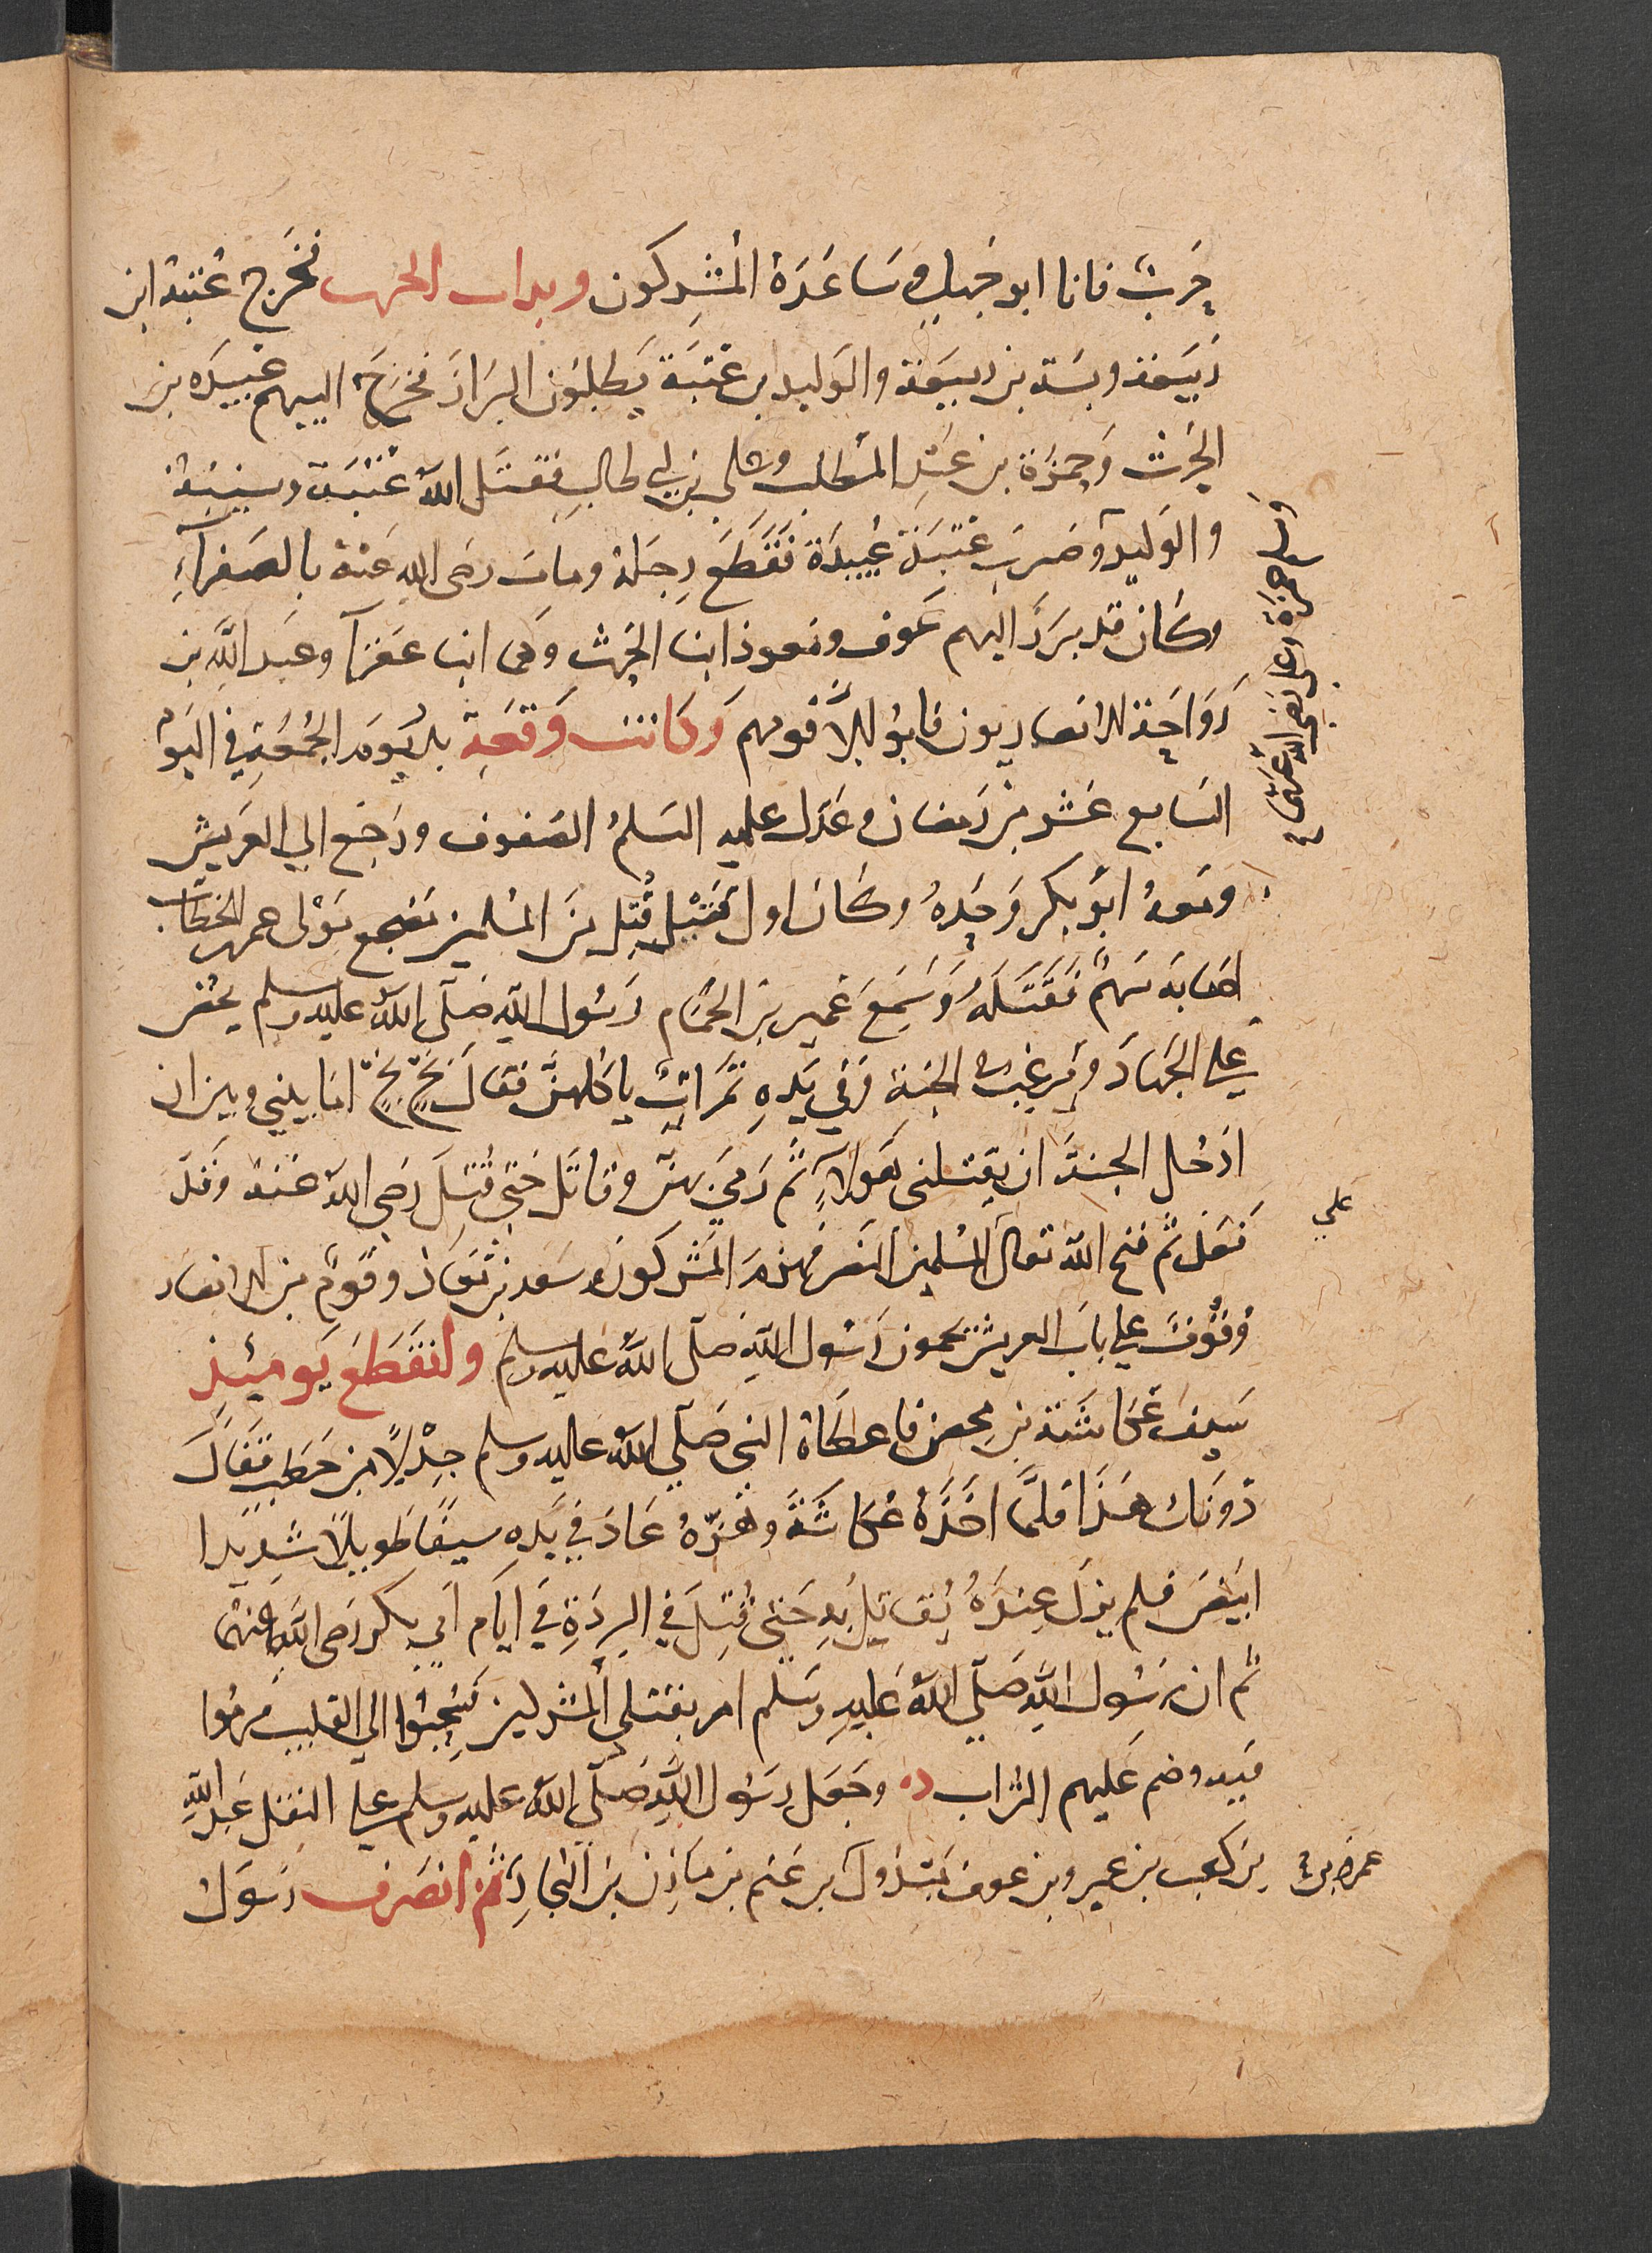 حرب فانا ابو جهل وساعده المشركون وبدات الحرب فخرج عتبة ابن
ربيعة وشيبة بن ربيعة والوليد بن عتبة يطلبون البراز فخرج اليهم عبيدة بن
الحرث وحمزة بن عبد المطلب وعلى بن ابي طالب فقتل الله عتبة وشيبة
والوليد وضرب عتبة عبيدة فقطع رجله ومات رضى الله عنه بالصفراء
وكان قد برز اليهم عوف ومعوذ ابنا الحرث وهما ابنا عفرا وعبد الله بن
رواحة الانصاريون فابوا الا قومهم وكانت وقعة بدر يوم الجمعة في اليوم
السابع عشر من رمضان وعدل عليه السلم الصفوف ورجع الي العريش
ومعه ابو بكر وحده وكان اول قتيل قتل من المسلمين مهجع مولى عمر بن الخطاب
اصابه سهم فقتله وسمع عمير بن الحمام رسول الله صلى الله عليه وسلم يحض
علي الجهاد ويرغب في الجنة وفي يده تمرات ياكلهن فقال بخ بخ اما بيني وبين ان
ادخل الجنة ان يقتلني هولاء ثم رمي بهن وقاتل حتى قتل رضي الله عنه وقد
فعل ثم منح الله تعالى المسلمين النصر فهزم المشركون وسعد بن معاذ وقوم من الانصار
وقوف علي باب العريش يحمون رسول الله صلى الله عليه وسلم وانقطع يوميئذ
سيف عكاشة بن محصن فاعطاه النبي صلي الله عليه وسلم جدلا من حطب فقال
دونك هذا فلما اخذه عكاشة وهزه عاد في يده سيفا طويلا شديدا
ابيض فلم يزل عنده يقاتل به حتى قتل في الردة في ايام ابي بكر رضى الله عنهما
ثم ان رسول الله صلي الله عليه وسلم امر بقتلى المشركين فسحبوا الي القليب فرموا
فيه وضم عليهم التراب وجعل رسول الله صلى الله عليه وسلم علي النفل عبد الله
بن كعب بن عمرو بن عوف بن مبذول بن عمرو بن غنم بن مازن بن النجار ثم انصرف رسول
علي